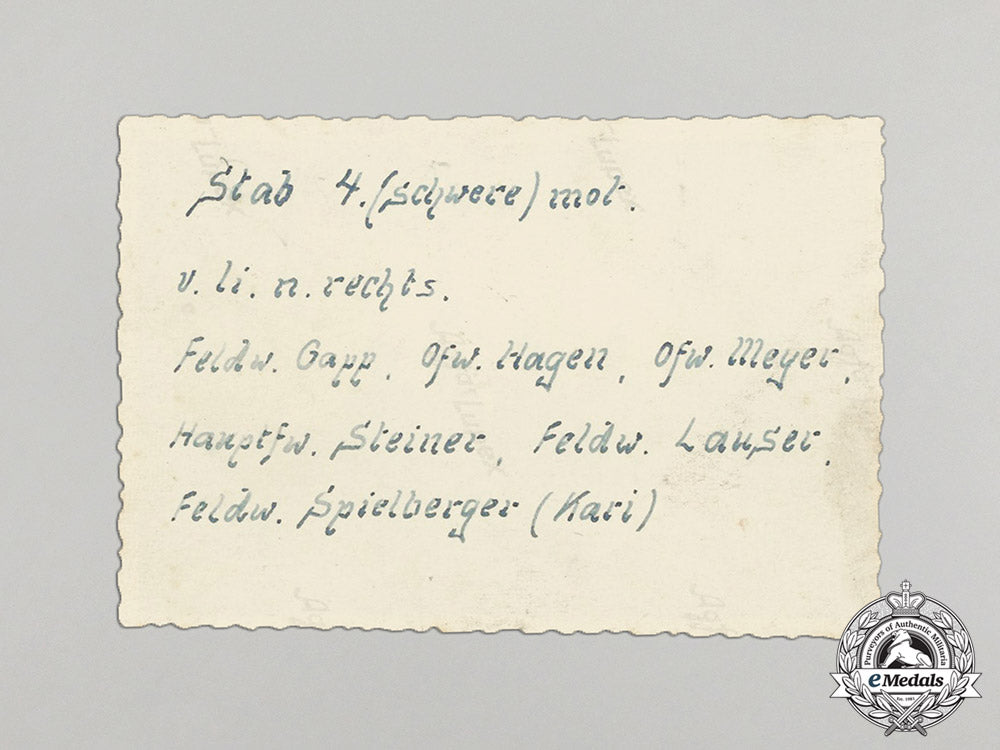 Stab 4. (schwere) mot.
v. li. n. rechts.
Feldw. Gapp, Ofw. Hagen, Ofw. Meyer,
Hauptfw. Steiner, Feldw. Lauser,
Feldw. Spielberger (Kari)
Purveyors of Authentic Militaria
eMedals